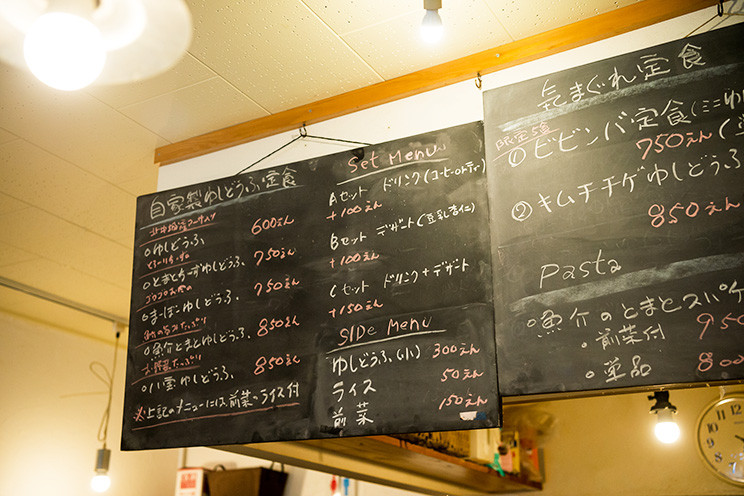 自家製ゆしどうふ定食
○ゆしどうふ 600えん
○とまとちーずゆしどうふ 750えん
○まーぼーゆしどうふ 750えん
○魚介とまとゆしどうふ 850えん
ゆしどうふ 850えん
※上記のメニューには前菜・ライス付
Set Menu
Aセット ドリンク(コーヒーorティ)
+100えん
Bセット デザート(豆乳杏仁)
+100えん
Cセット ドリンク+デザート
+150えん
SIDe Menu
ゆしどうふ(小) 300えん
ライス 50えん
前菜 150えん
気まぐれ定食
限定5食
①ビビンバ定食(ミニゆし
750えん
②キムチチゲゆしどうふ
850えん
Pasta
○魚介のとまとスパ
・前菜付 950
・単品 800